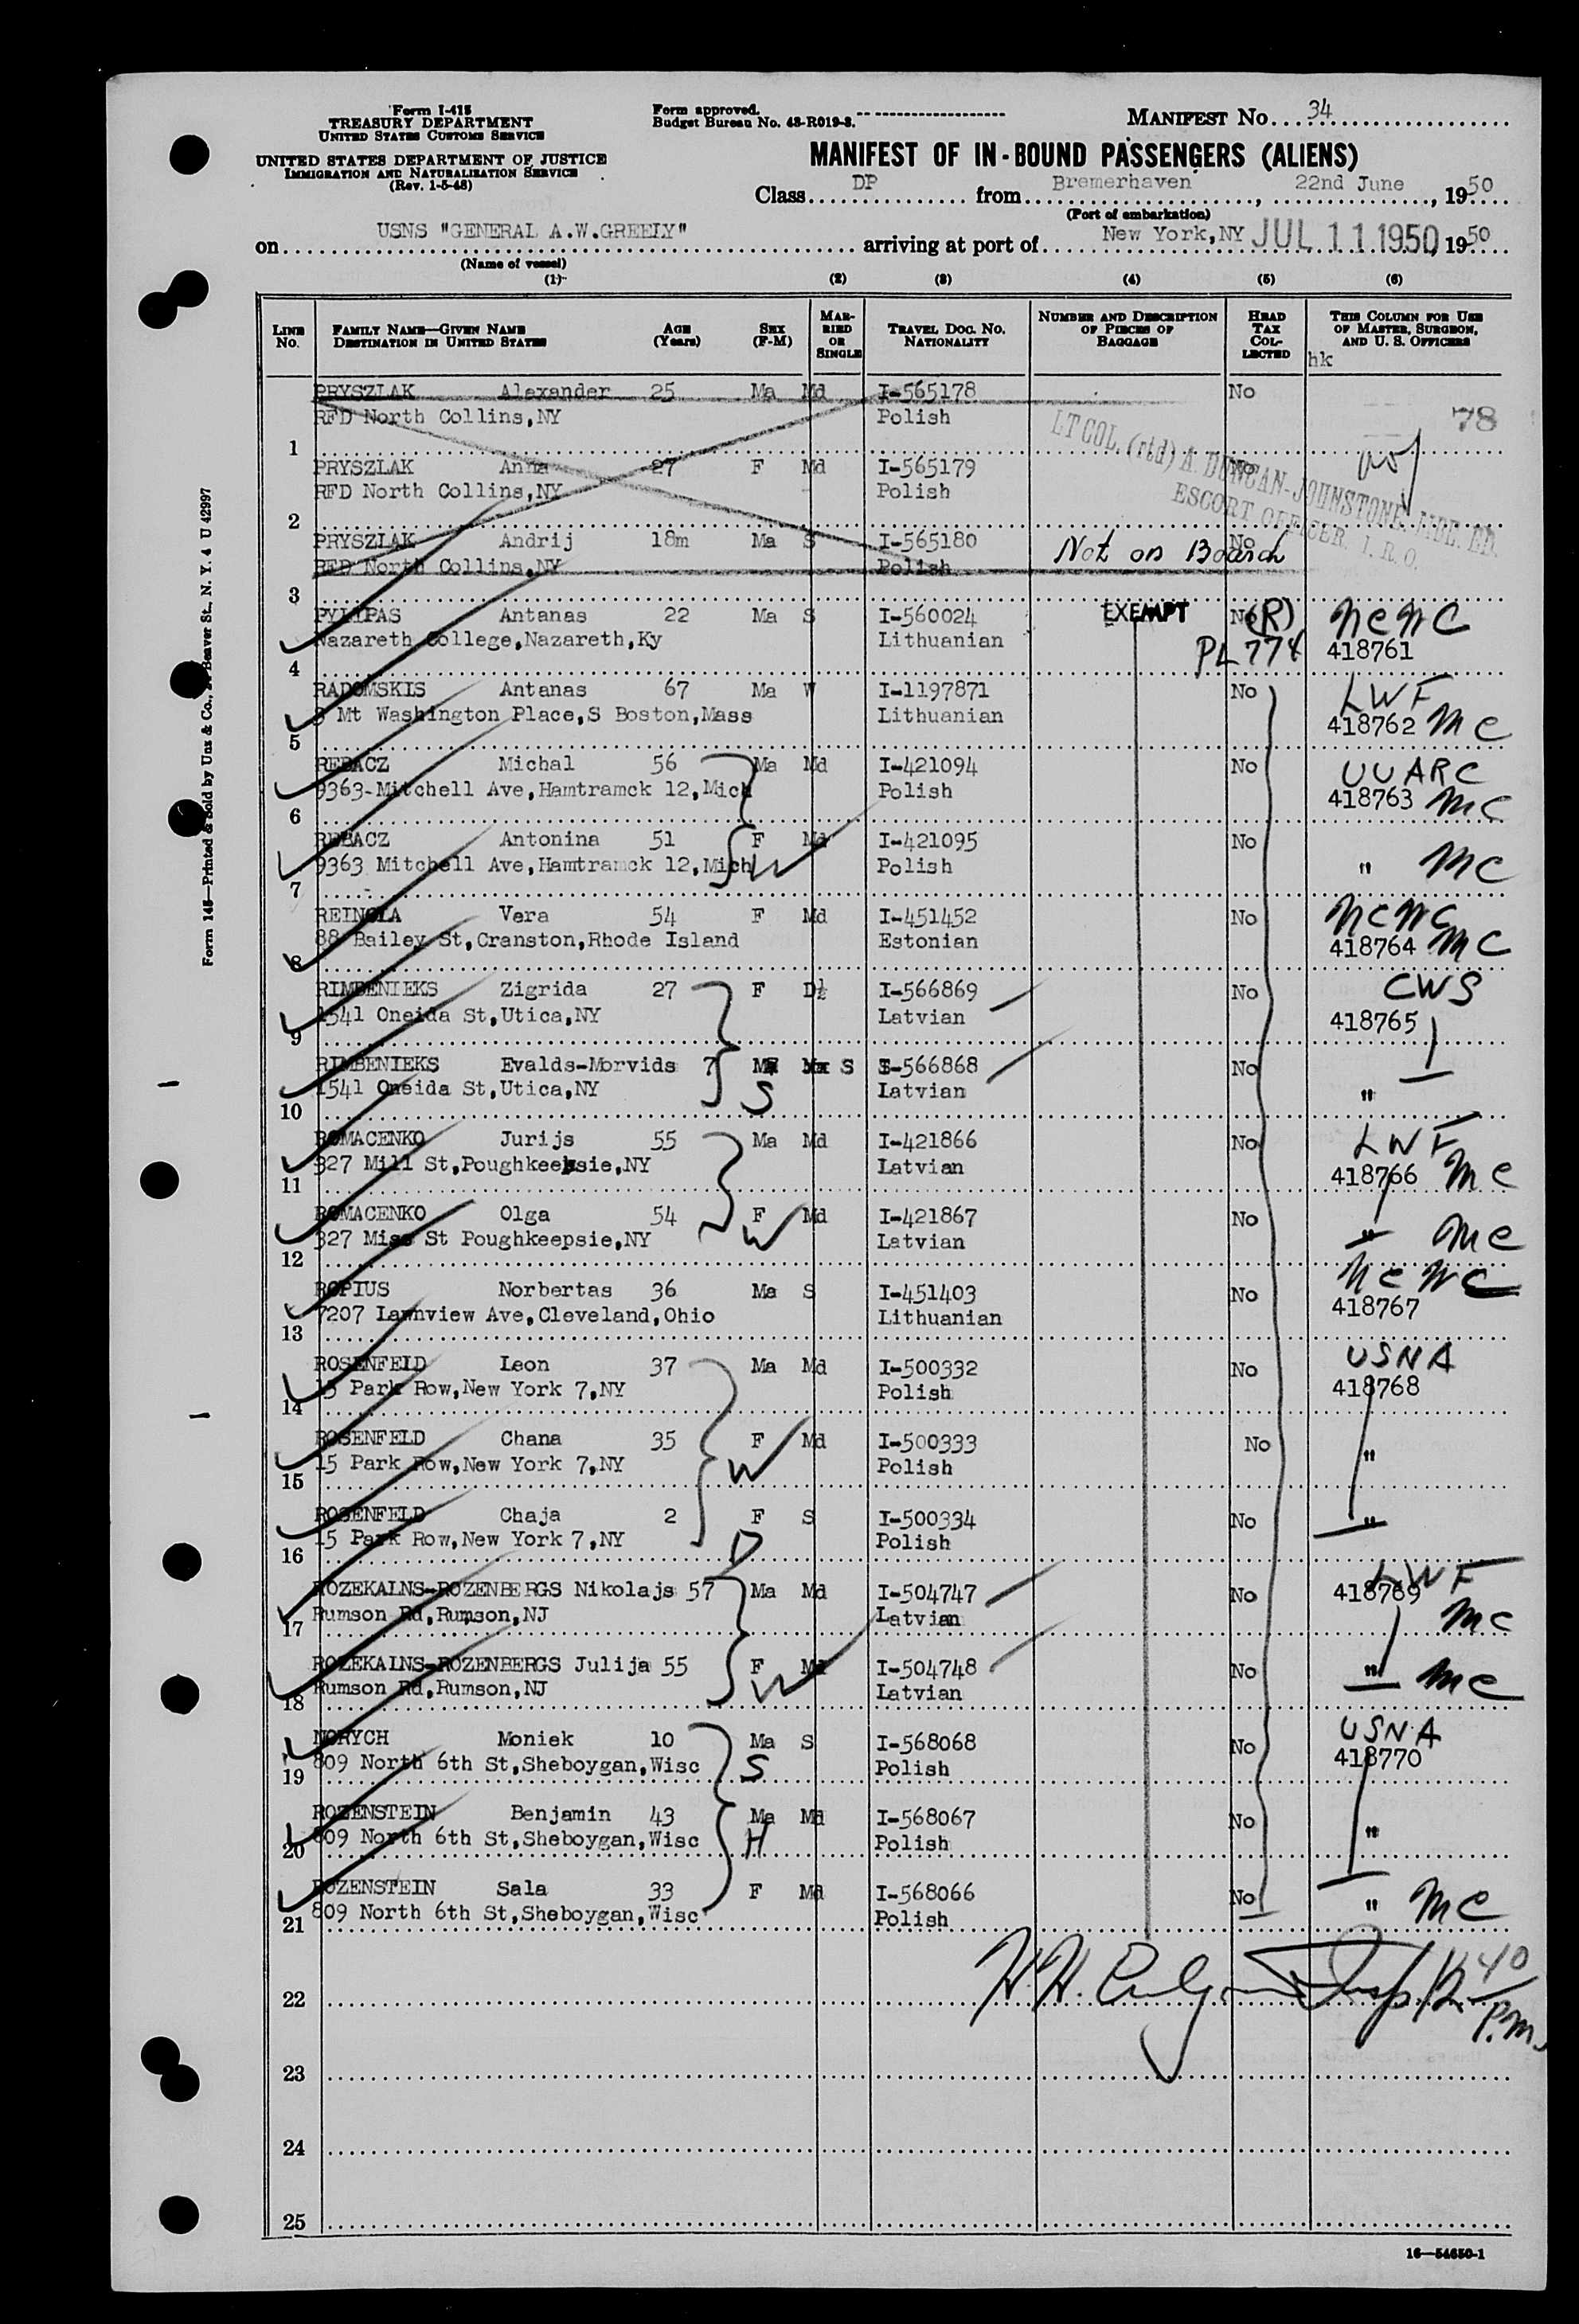 Form I-415
TREASURY DEPARTMENT
UNITED STATES CUSTOMS SERVICE
UNITED STATES DEPARTMENT OF JUSTICE
IMMIGRATION AND NATURALIZATION SERVICE
(Rev. 1-5-48)
Form approved.
Budget Bureau No. 43-R019-3.
MANIFEST No. 34
MANIFEST OF IN-BOUND PASSENGERS (ALIENS)
Class DP from Bremerhaven, 22nd June, 1950
(Port of embarkation)
on USNS "GENERAL A.W.GREELY" arriving at port of New York,NY JUL 11 1950, 1950
(Name of vessel)
(1) (2) (3) (4) (5) (6)
LINE No. FAMILY NAME—GIVEN NAME DESTINATION IN UNITED STATES AGE (Years) SEX (F-M) MARRIED OR SINGLE TRAVEL DOC. No. NATIONALITY NUMBER AND DESCRIPTION OF PIECES OF BAGGAGE HEAD TAX COLLECTED THIS COLUMN FOR USE OF MASTER, SURGEON, AND U. S. OFFICERS
hk
PRYSZLAK Alexander 25 Ma Md I-565178 No
RFD North Collins,NY Polish 78
1
LT COL. (rtd) A. DUNCAN-JOHNSTONE. M.B.E. ED.
ESCORT OFFICER. I. R. O.
PRYSZLAK Anna 27 F Md I-565179 No
RFD North Collins,NY Polish
2
PRYSZLAK Andrij 18m Ma S I-565180 Not on Board No
RFD North Collins,NY Polish
3
PYLIPAS Antanas 22 Ma S I-560024 EXEMPT No (R) NCWC
Nazareth College,Nazareth,Ky Lithuanian PL 774 418761
4
RADOMSKIS Antanas 67 Ma W I-1197871 No LWF
8 Mt Washington Place,S Boston,Mass Lithuanian 418762 MC
5
REBACZ Michal 56 Ma Md I-421094 No UUARC
9363-Mitchell Ave,Hamtramck 12,Mich Polish 418763 MC
6
REBACZ Antonina 51 F Md I-421095 No
9363 Mitchell Ave,Hamtramck 12,Mich W Polish " MC
7
REINOLA Vera 54 F Md I-451452 No NCWC
88 Bailey St,Cranston,Rhode Island Estonian 418764 MC
8
RIMBENIEKS Zigrida 27 F D I-566869 No CWS
1541 Oneida St,Utica,NY Latvian 418765
9
RIMBENIEKS Evalds-Morvids 7 M S I-566868 No
1541 Oneida St,Utica,NY S Latvian "
10
ROMACENKO Jurijs 55 Ma Md I-421866 No LWF
327 Mill St,Poughkeepsie,NY Latvian 418766 MC
11
ROMACENKO Olga 54 F Md I-421867 No
327 Miss St Poughkeepsie,NY W Latvian " MC
12
ROPIUS Norbertas 36 Ma S I-451403 No NCWC
7207 Lawnview Ave,Cleveland,Ohio Lithuanian 418767
13
ROSENFELD Leon 37 Ma Md I-500332 No USNA
15 Park Row,New York 7,NY Polish 418768
14
ROSENFELD Chana 35 F Md I-500333 No
15 Park Row,New York 7,NY W Polish "
15
ROSENFELD Chaja 2 F S I-500334 No
15 Park Row,New York 7,NY D Polish "
16
ROZEKALNS-ROZENBERGS Nikolajs 57 Ma Md I-504747 No 418769 LWF
Rumson Rd,Rumson,NJ Latvian MC
17
ROZEKALNS-ROZENBERGS Julija 55 F Md I-504748 No
Rumson Rd,Rumson,NJ W Latvian " MC
18
NORYCH Moniek 10 Ma S I-568068 No USNA
809 North 6th St,Sheboygan,Wisc S Polish 418770
19
ROZENSTEIN Benjamin 43 Ma Md I-568067 No
809 North 6th St,Sheboygan,Wisc H Polish "
20
ROZENSTEIN Sala 33 F Md I-568066 No
809 North 6th St,Sheboygan,Wisc Polish " MC
21
Insp. 12 40 P.M.
22
23
24
25
16—54650-1
Form 145—Printed & Sold by Unz & Co., Beaver St., N. Y. 4 U 42997